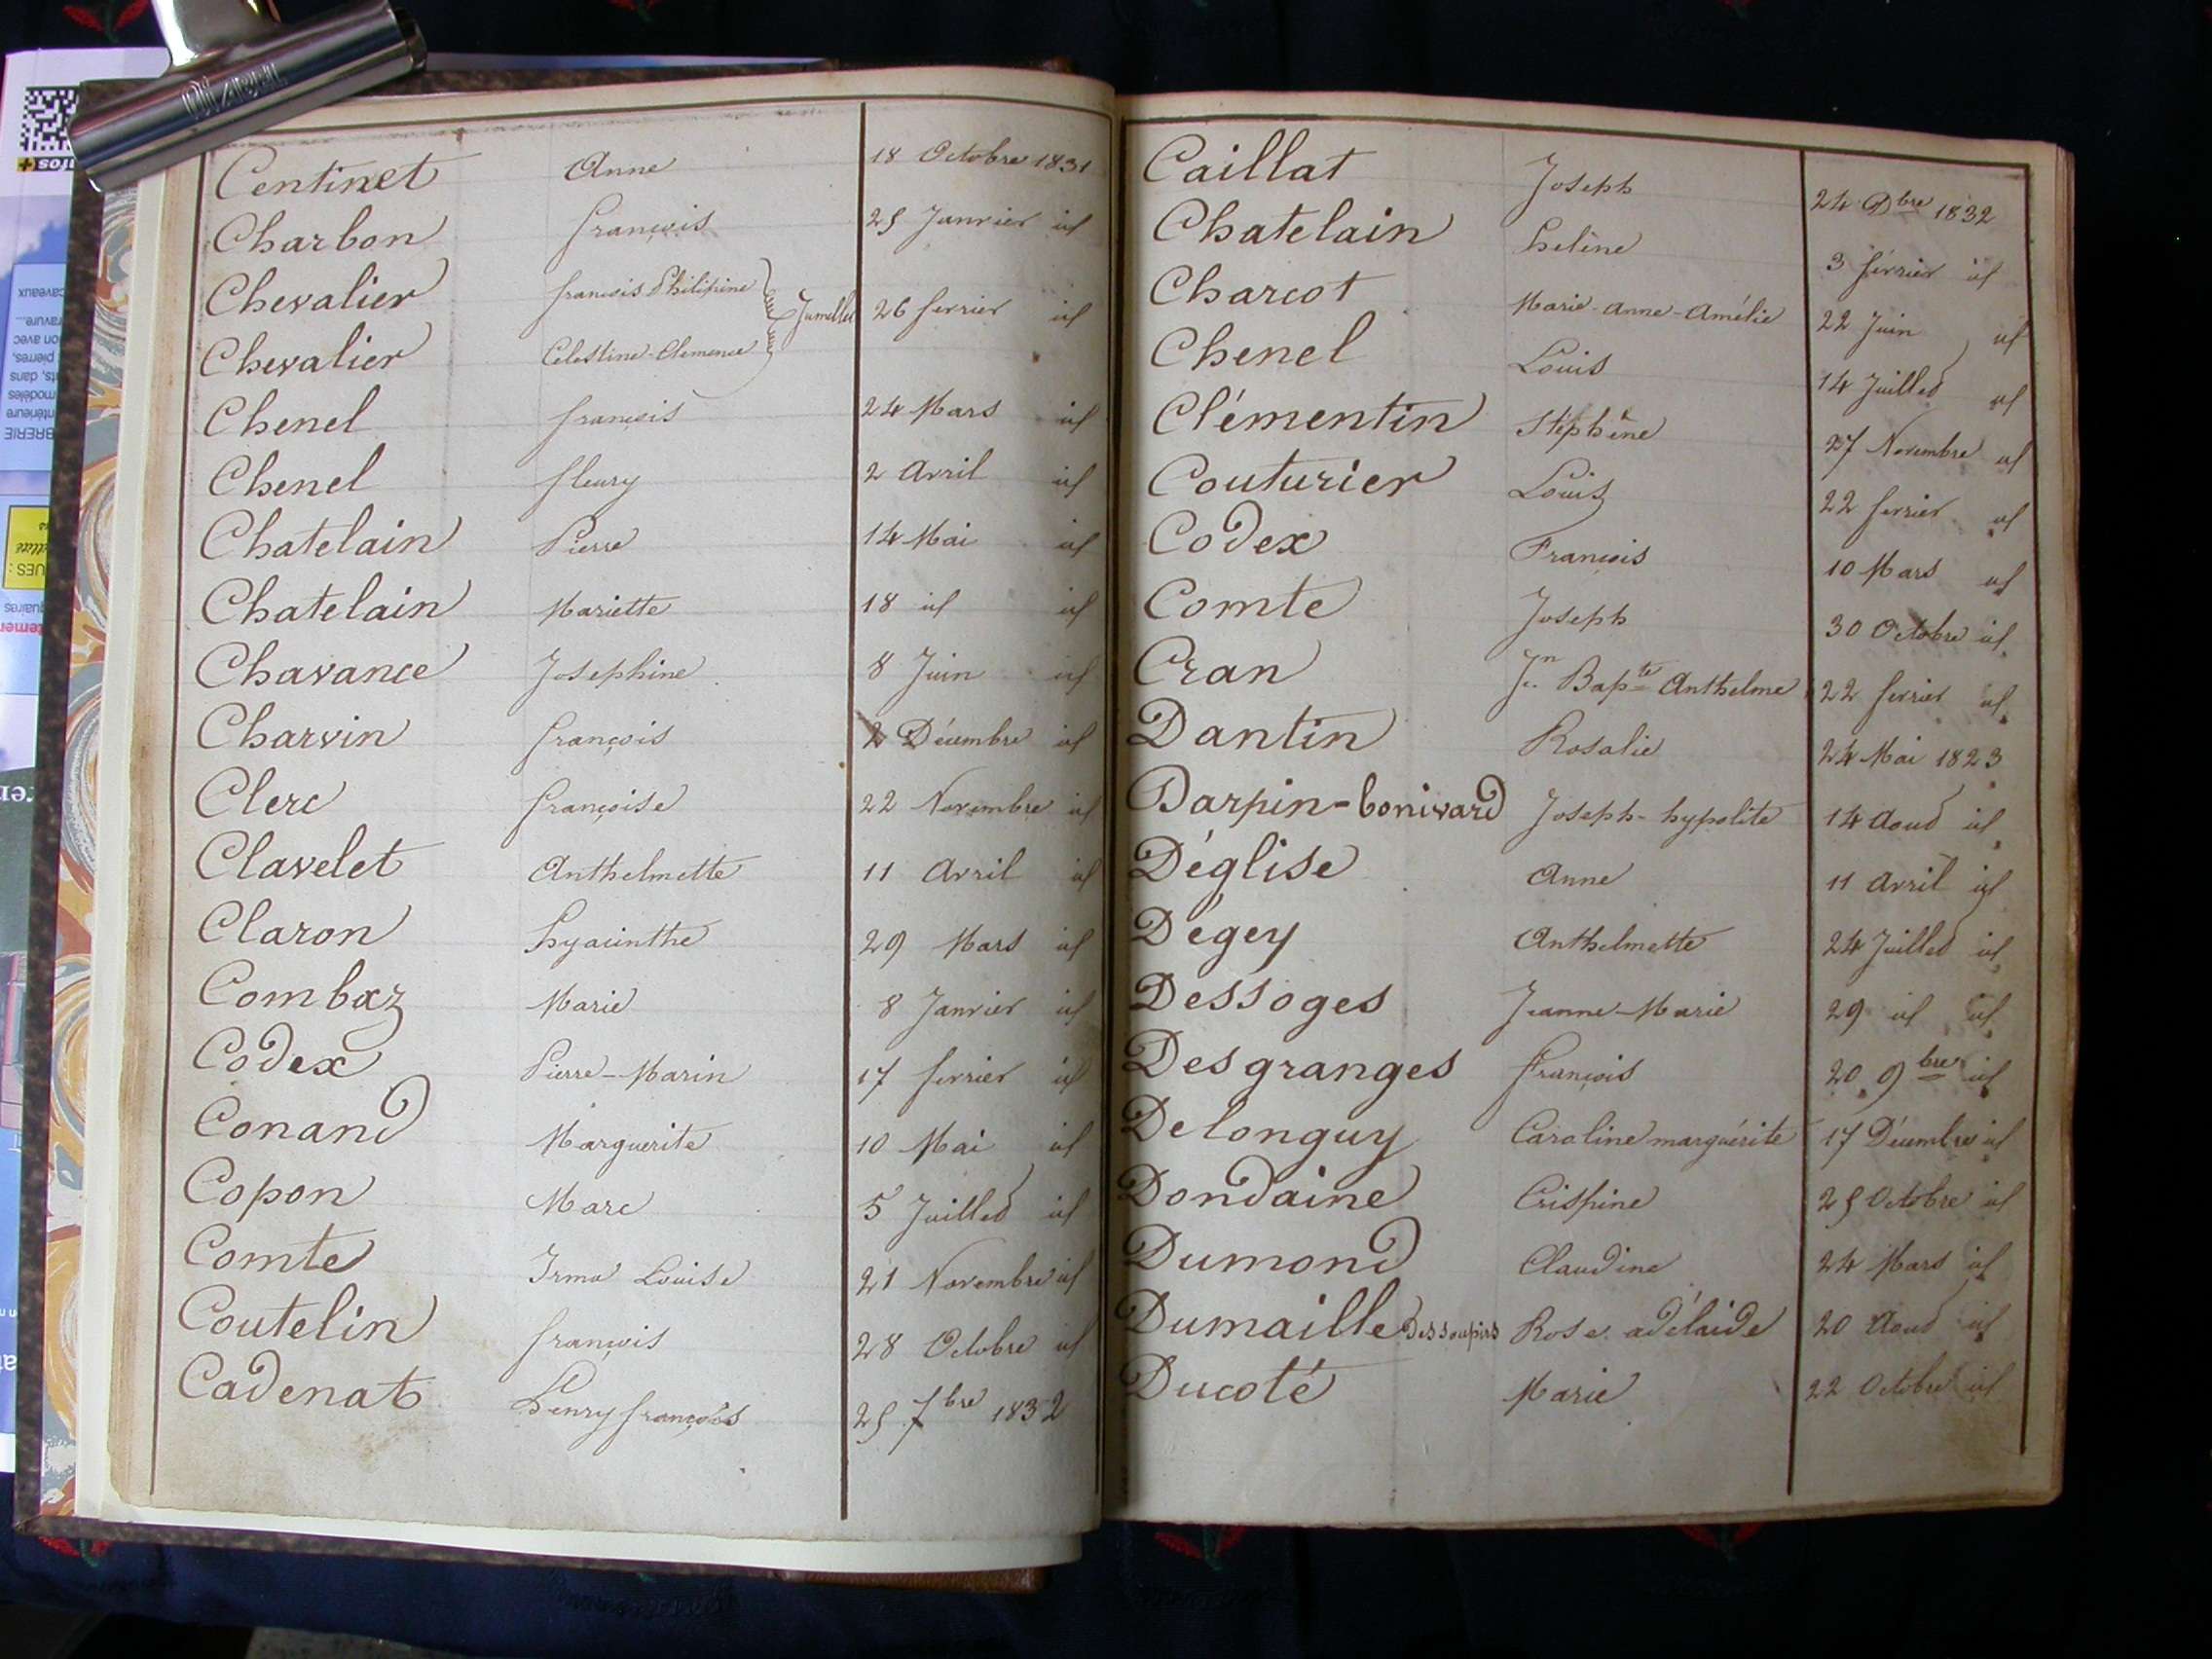 Centinet Anne 18 Octobre 1831
Charbon françois 25 Janvier id
Chevalier françois Philipine
Jumelles 26 fevrier id
Chevalier Celestine-Clemence
Chenel françois 24 Mars id
Chenel fleury 2 Avril id
Chatelain Pierre 14 Mai id
Chatelain Mariette 18 id id
Chavance Josephine 8 Juin id
Charvin françois 2 Décembre id
Clerc françoise 22 Novembre id
Clavelet Anthelmette 11 Avril id
Claron hyacinthe 29 Mars id
Combaz Marie 8 Janvier id
Codex Pierre-Marin 17 fevrier id
Conand Marguerite 10 Mai id
Copon Marc 5 Juillet id
Comte Irma Louise 21 Novembre id
Coutelin françois 28 Octobre id
Cadenat henry françois 25 7bre 1832
Caillat Joseph 24 Dbre 1832
Chatelain helène 3 février id
Charcot Marie-Anne-Amélie 22 Juin id
Chenel Louis 14 Juillet id
Clémentin Stéphène 27 Novembre id
Couturier Louis 22 fevrier id
Codex François 10 Mars id
Comte Joseph 30 Octobre id
Cran Jn Bapte Anthelme 22 fevrier id
Dantin Rosalie 24 Mai 1823
Darpin-bonivard Joseph-hypolite 14 Aout id
Déglise Anne 11 Avril id
Dégey Anthelmette 24 Juillet id
Dessoges Jeanne-Marie 29 id id
Desgranges françois 20 9bre id
Delonguy Caroline marguérite 17 Décembre id
Dondaine Crispine 25 Octobre id
Dumond Claudine 24 Mars id
Dumaille Dessoupirs Rose adélaide 20 Aout id
Ducoté Marie 22 Octobre id